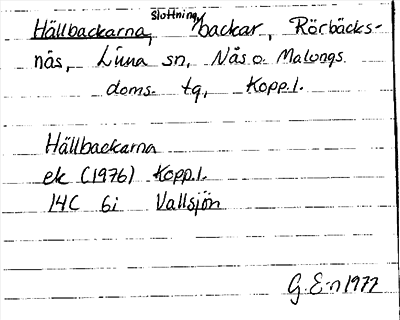 Hällbackarna, Slottningbackar, Rörbäcks-
näs, Lima sn, Nås o. Malungs
doms. tg, Kopp.l.
Hällbackarna
ek (1976) Kopp.l.
14C 6i Vallsjön
G. E-n 1977